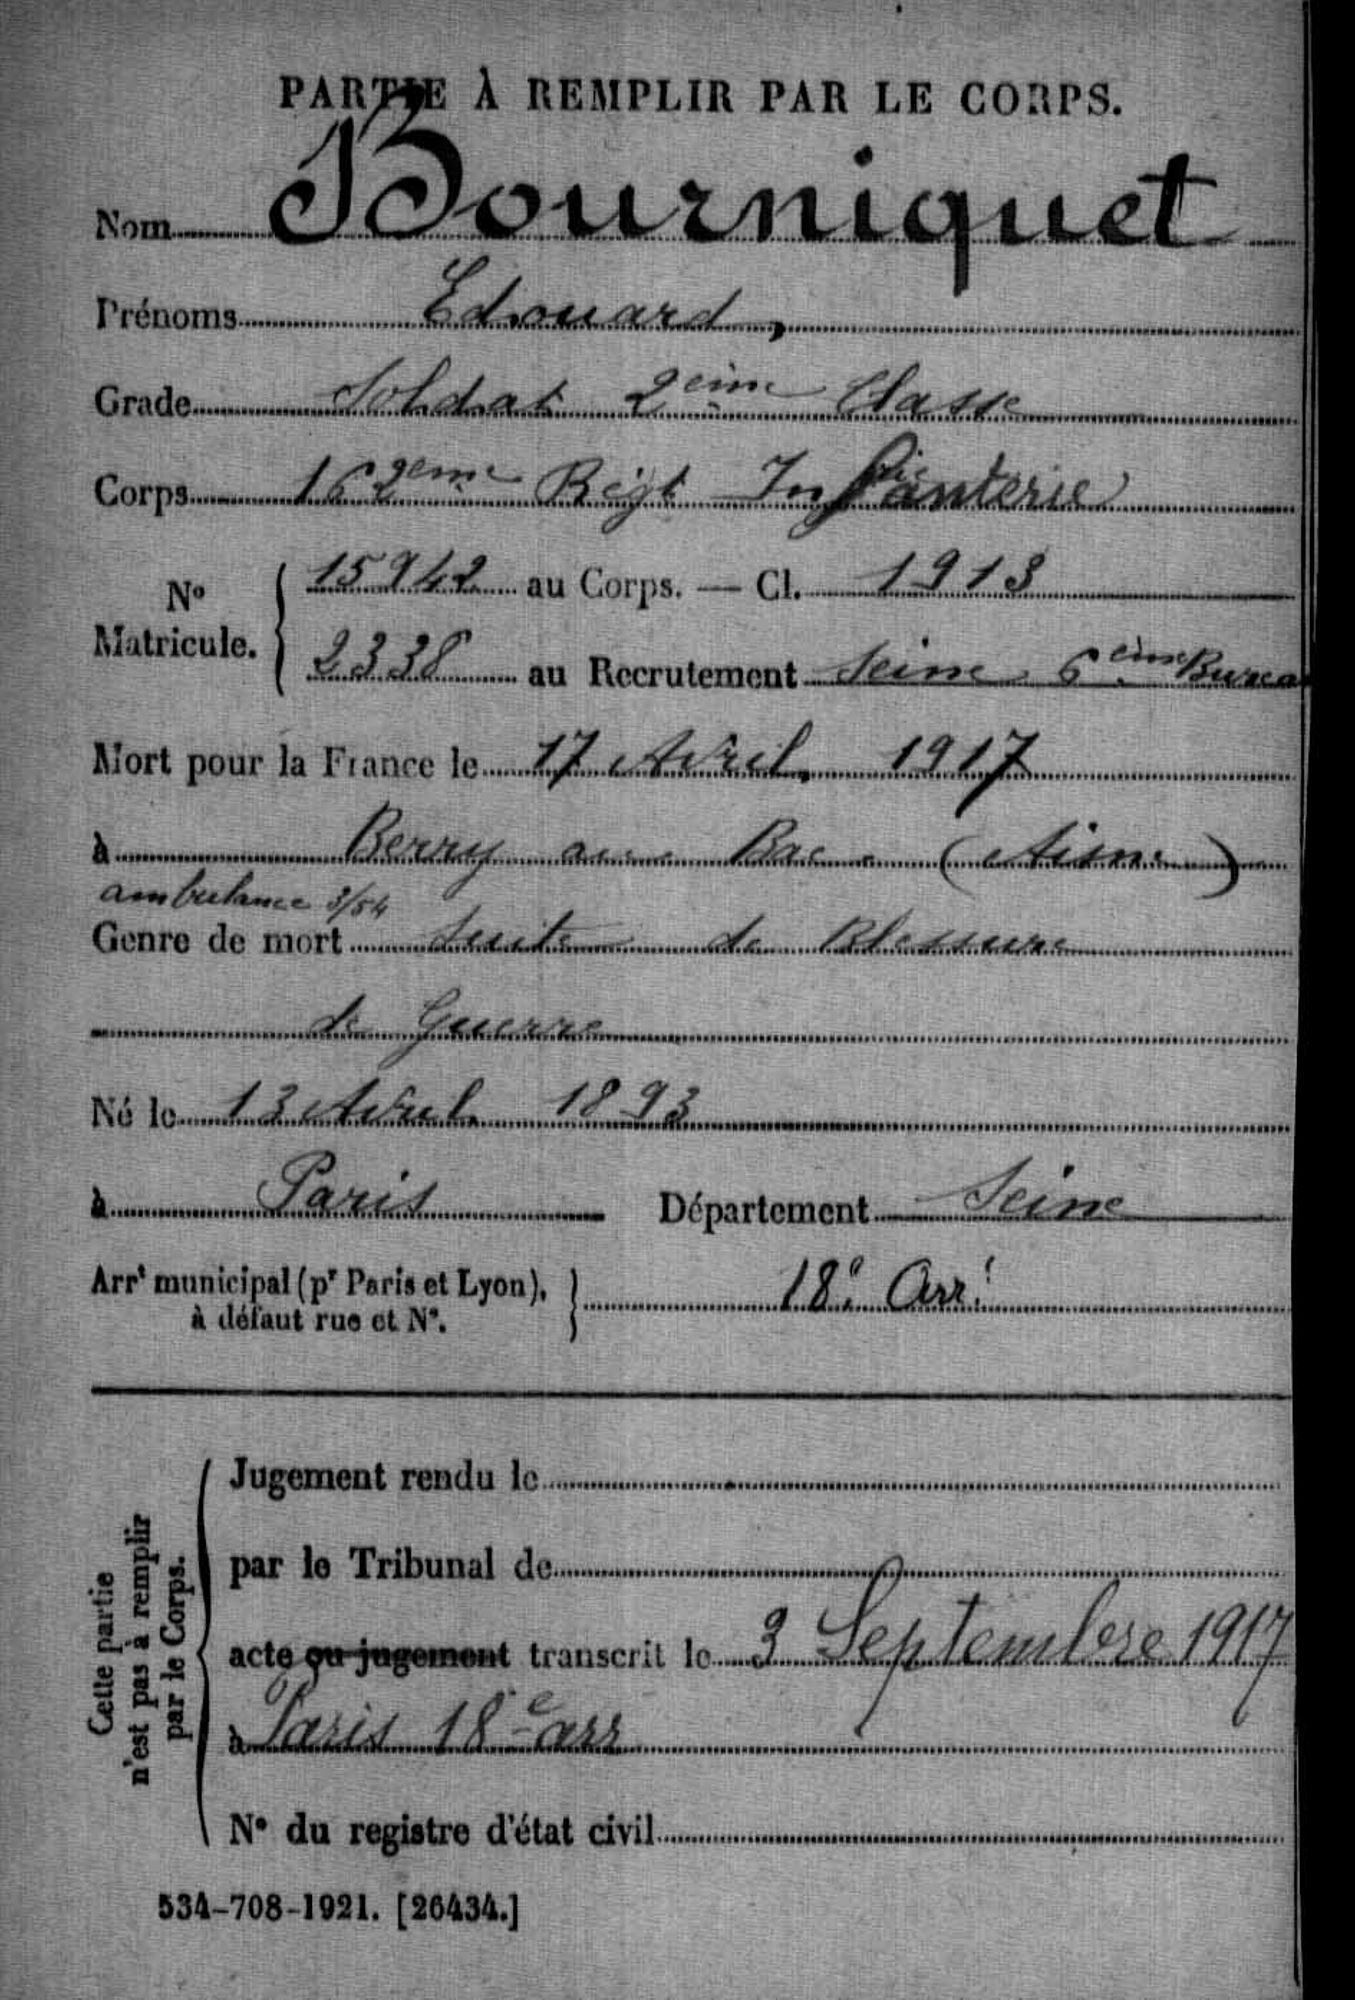 PARTIE À REMPLIR PAR LE CORPS.
Nom Bourniquet
Prénoms Edouard,
Grade Soldat 2eime Classe
Corps 162eme Régt Infanterie
No Matricule. 15942 au Corps. — Cl. 1913
2338 au Recrutement Seine 6eime Burea
Mort pour la France le 17 Avril 1917
à Berry au Bac (Aisne)
ambulance 3/54
Genre de mort Suite de Blessure
de Guerre
Né le 13 Avril 1893
à Paris Département Seine
Arrt municipal (pr Paris et Lyon), à défaut rue et No. 18e Arrt
Cette partie n'est pas à remplir par le Corps.
Jugement rendu le
par le Tribunal de
acte ou jugement transcrit le 3 Septembre 1917
à Paris 18e arr
No du registre d'état civil
534-708-1921. [26434.]